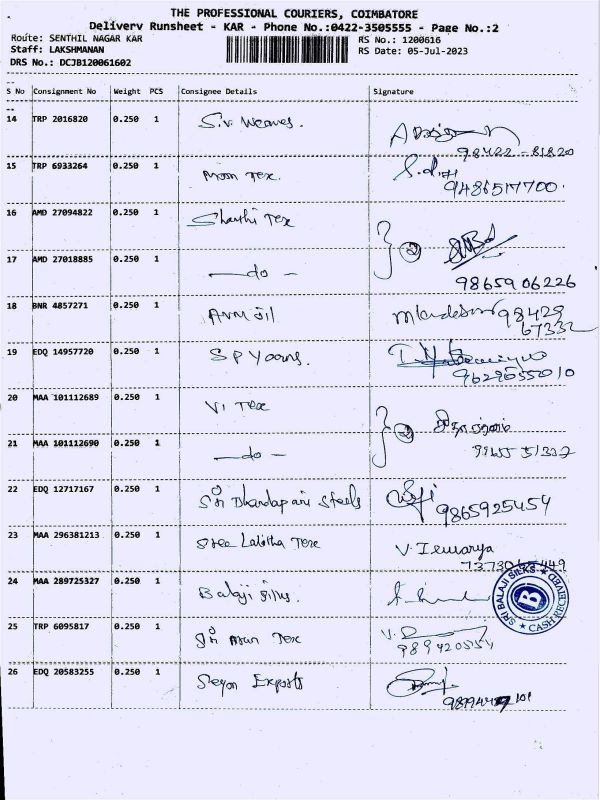 THE PROFESSIONAL COURIERS, COIMBATORE
Delivery Runsheet - KAR - Phone No.:0422-3505555 - Page No.:2
Route: SENTHIL NAGAR KAR RS No.: 1200616
Staff: LAKSHMANAN RS Date: 05-Jul-2023
DRS No.: DCJB120061602
S No Consignment No Weight PCS Consignee Details Signature
14 TRP 2016820 0.250 1 S.V. Weaves.
98422-81820
15 TRP 6933264 0.250 1 Moon Tex.
9486517700.
16 AMD 27094822 0.250 1 Shanthi Tex
17 AMD 27018885 0.250 1 —do— 2
9865906226
18 BNR 4857271 0.250 1 AVM Oil 98429
67332
19 EDQ 14957720 0.250 1 S P Yarns.
9629655010
20 MAA 101112689 0.250 1 V1 Tex
21 MAA 101112690 0.250 1 —do— 2
22 EDQ 12717167 0.250 1 Sri Dhandapani Steels
9865925454
23 MAA 296381213 0.250 1 Sree Lalitha Tex
24 MAA 289725327 0.250 1 Balaji Silks.
SRI BALAJI SILKS ★ CASH RECEIVED ★
B
25 TRP 6095817 0.250 1 Sri Tex
26 EDQ 20583255 0.250 1 Seyon Exports